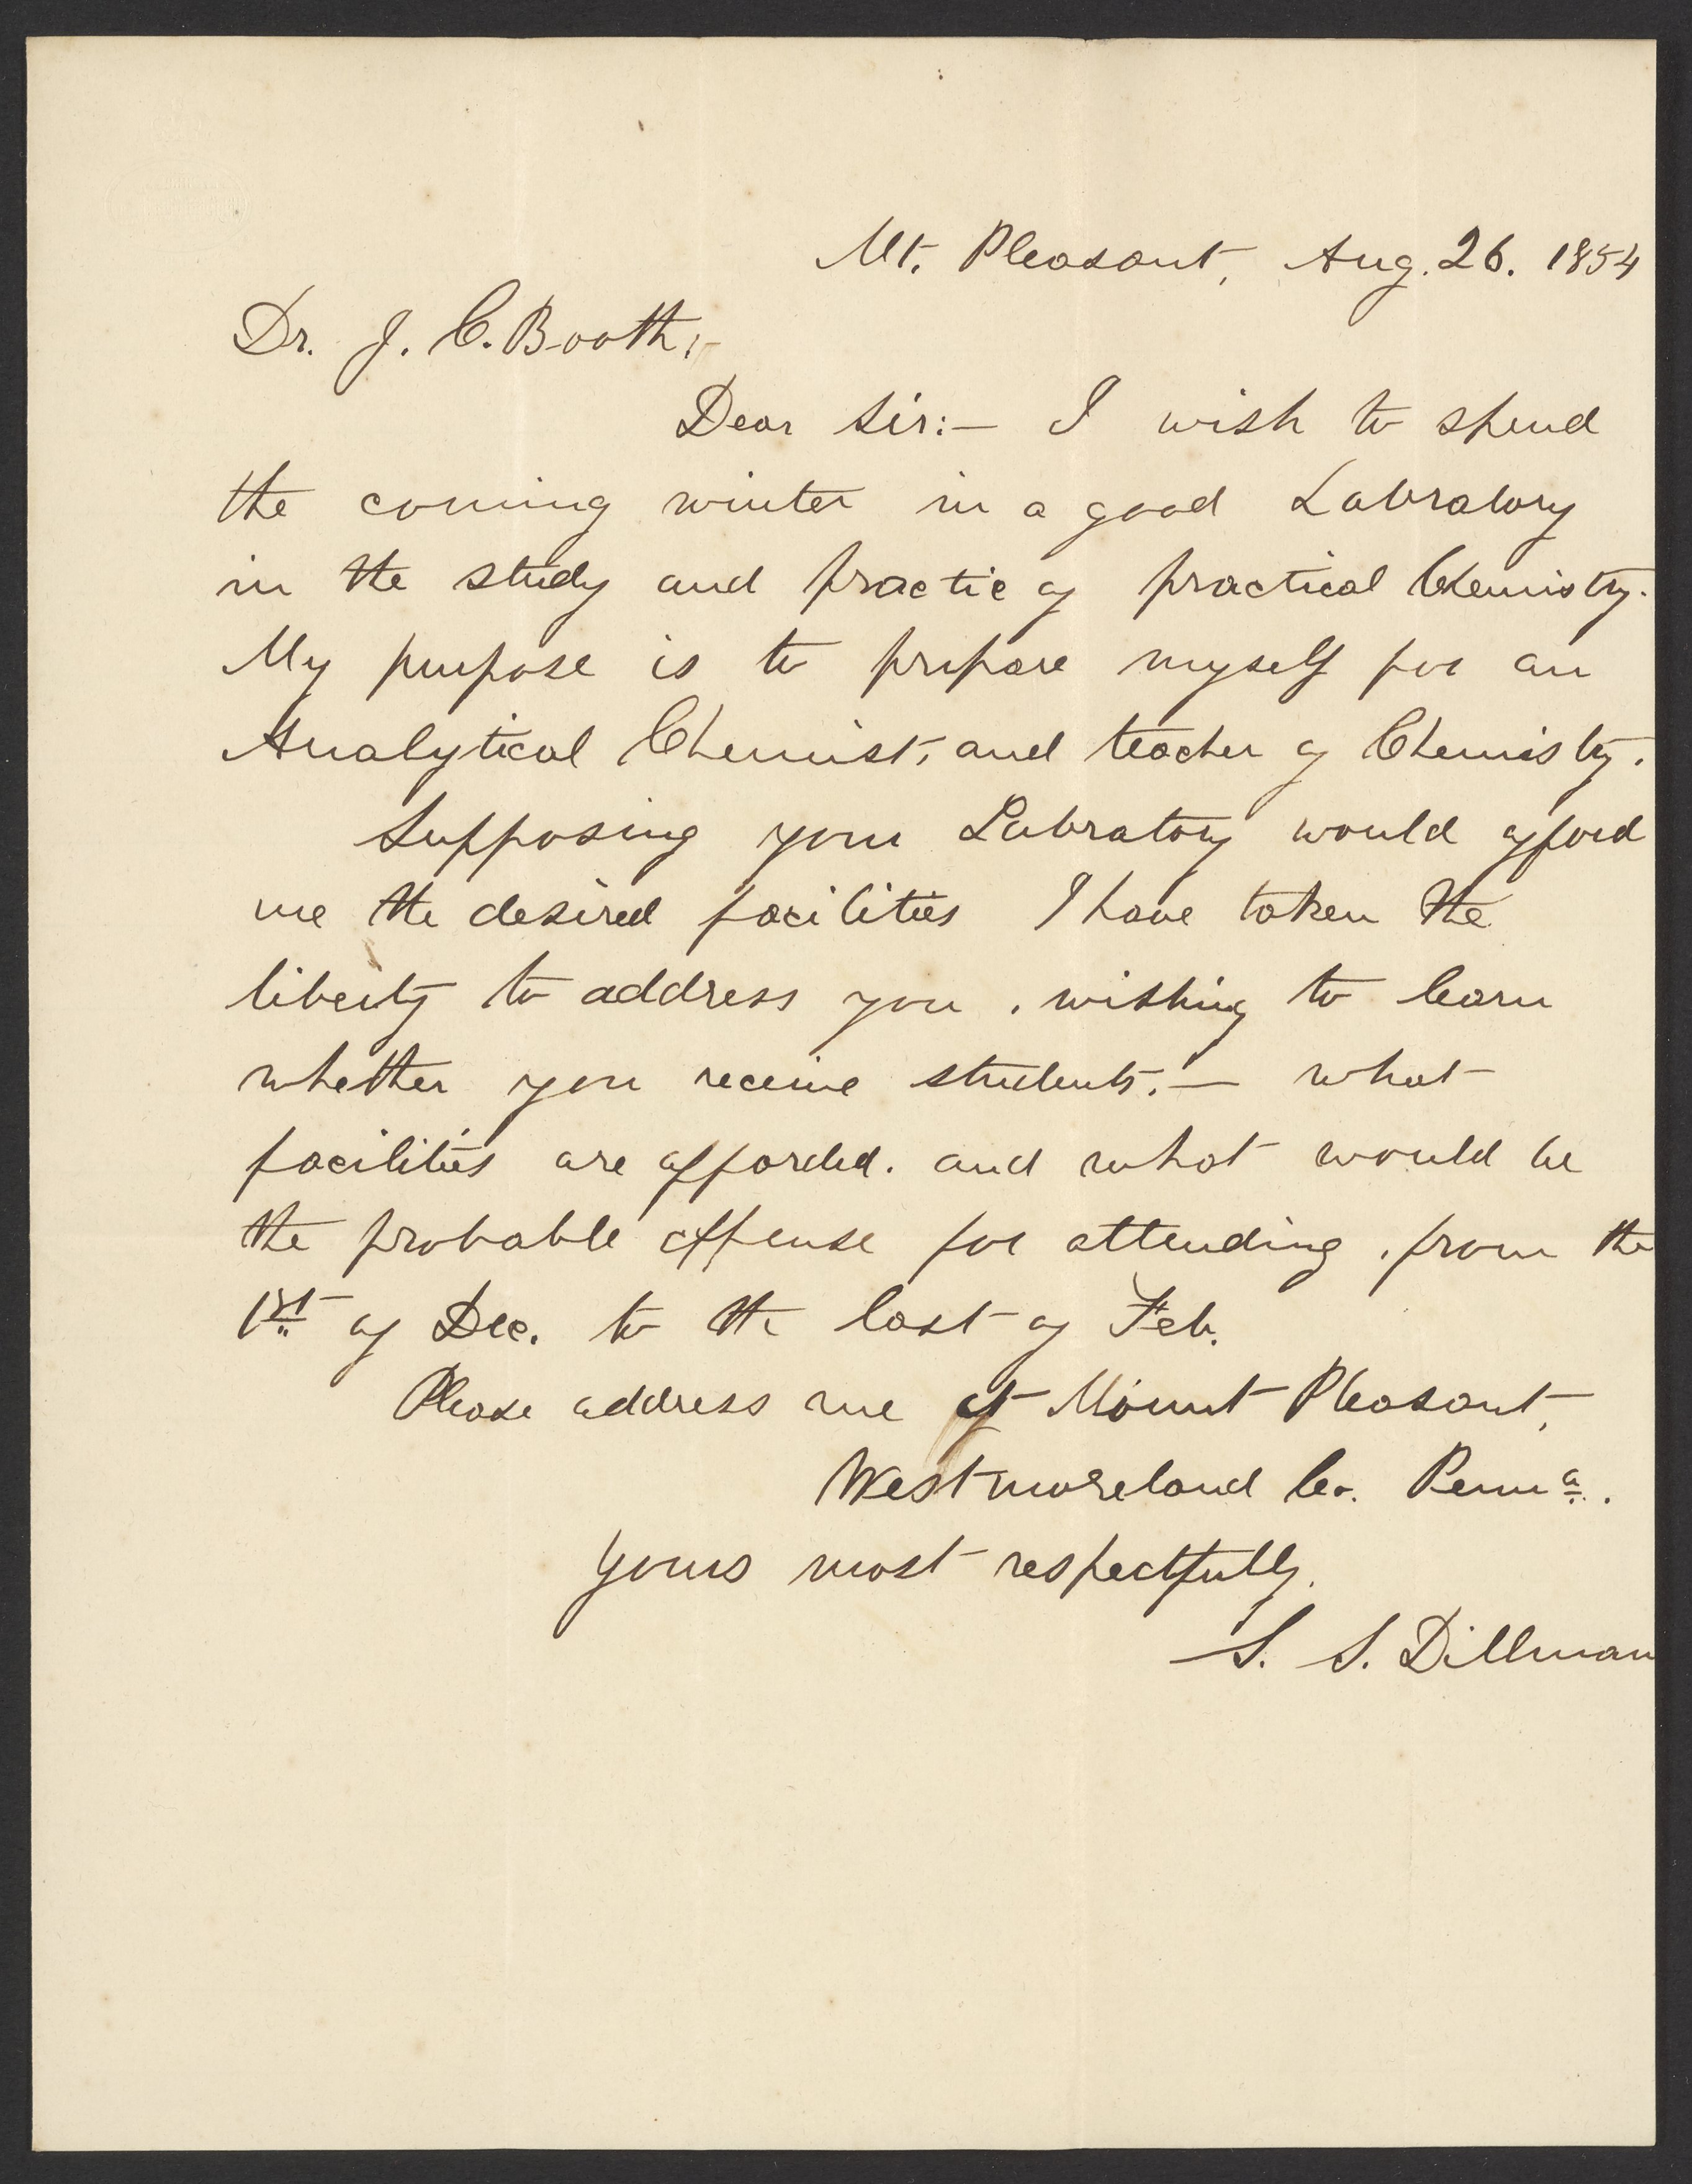 Mt. Pleasant, Aug. 26. 1854
Dr. J. C. Booth,-
Dear Sir:— I wish to spend
the coming winter in a good Labratory
in the study and practic of practical Chemistry.
My purpose is to prepare myself for an
Analytical Chemist, and teacher of Chemistry.
Supposing your Labratory would afford
me the desired facilities I have taken the
liberty to address you, wishing to learn
whether you receive students.— what
facilities are afforded. and what would be
the probable expense for attending, from the
1st of Dec. to the last of Feb.
Please address me at Mount Pleasant,
Westmoreland Co. Penna.
Yours most respectfully.
S. S. Dillman